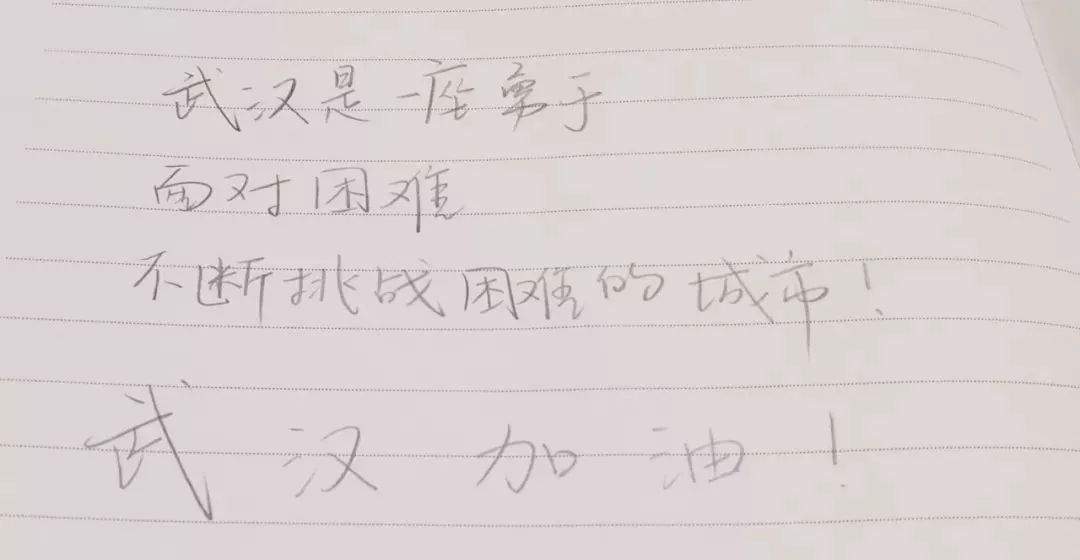 武汉是一座勇于
面对困难
不断挑战困难的城市！
武汉加油！